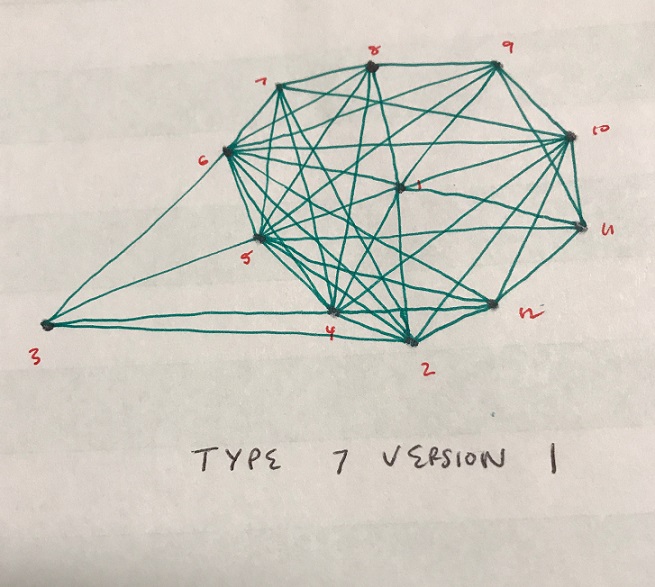 8
9
7
10
6
1
11
5
4
12
3
2
TYPE 7 VERSION 1